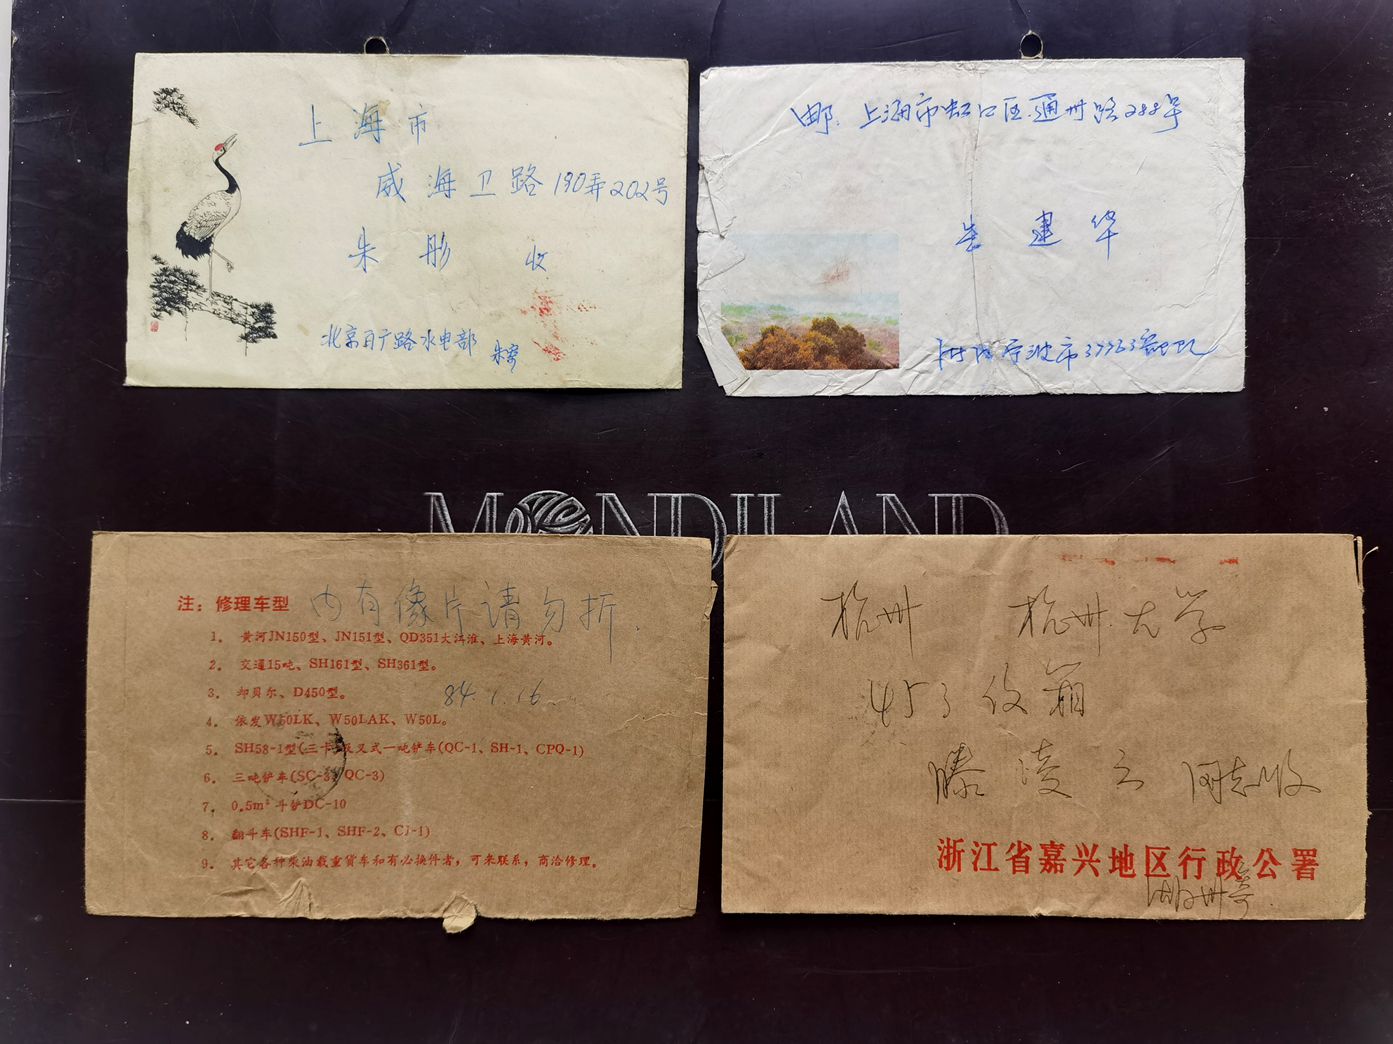 上海市
威海卫路190弄202号
朱彤 收
北京白广路水电部 朱寄
邮.上海市虹口区通州路288号
朱建华
宁波市37963部队
MONDILAND
注：修理车型 内有像片请勿折.
1．黄河JN150型、JN151型、QD351大江淮、上海黄河。
2．交通15吨、SH161型、SH361型。
3．却贝尔、D450型。
84.1.16
4．依发W50LK、W50LAK、W50L。
5．SH58-1型(三卡)及叉式一吨铲车(QC-1、SH-1、CPQ-1)
6．三吨铲车(SC-3、QC-3)
7．0.5m³斗铲DC-10
8．翻斗车(SHF-1、SHF-2、CJ-1)
9．其它各种柴油载重货车和有必换件者，可来联系，商洽修理。
杭州 杭州大学
453信箱
滕凌云 同志收
浙江省嘉兴地区行政公署